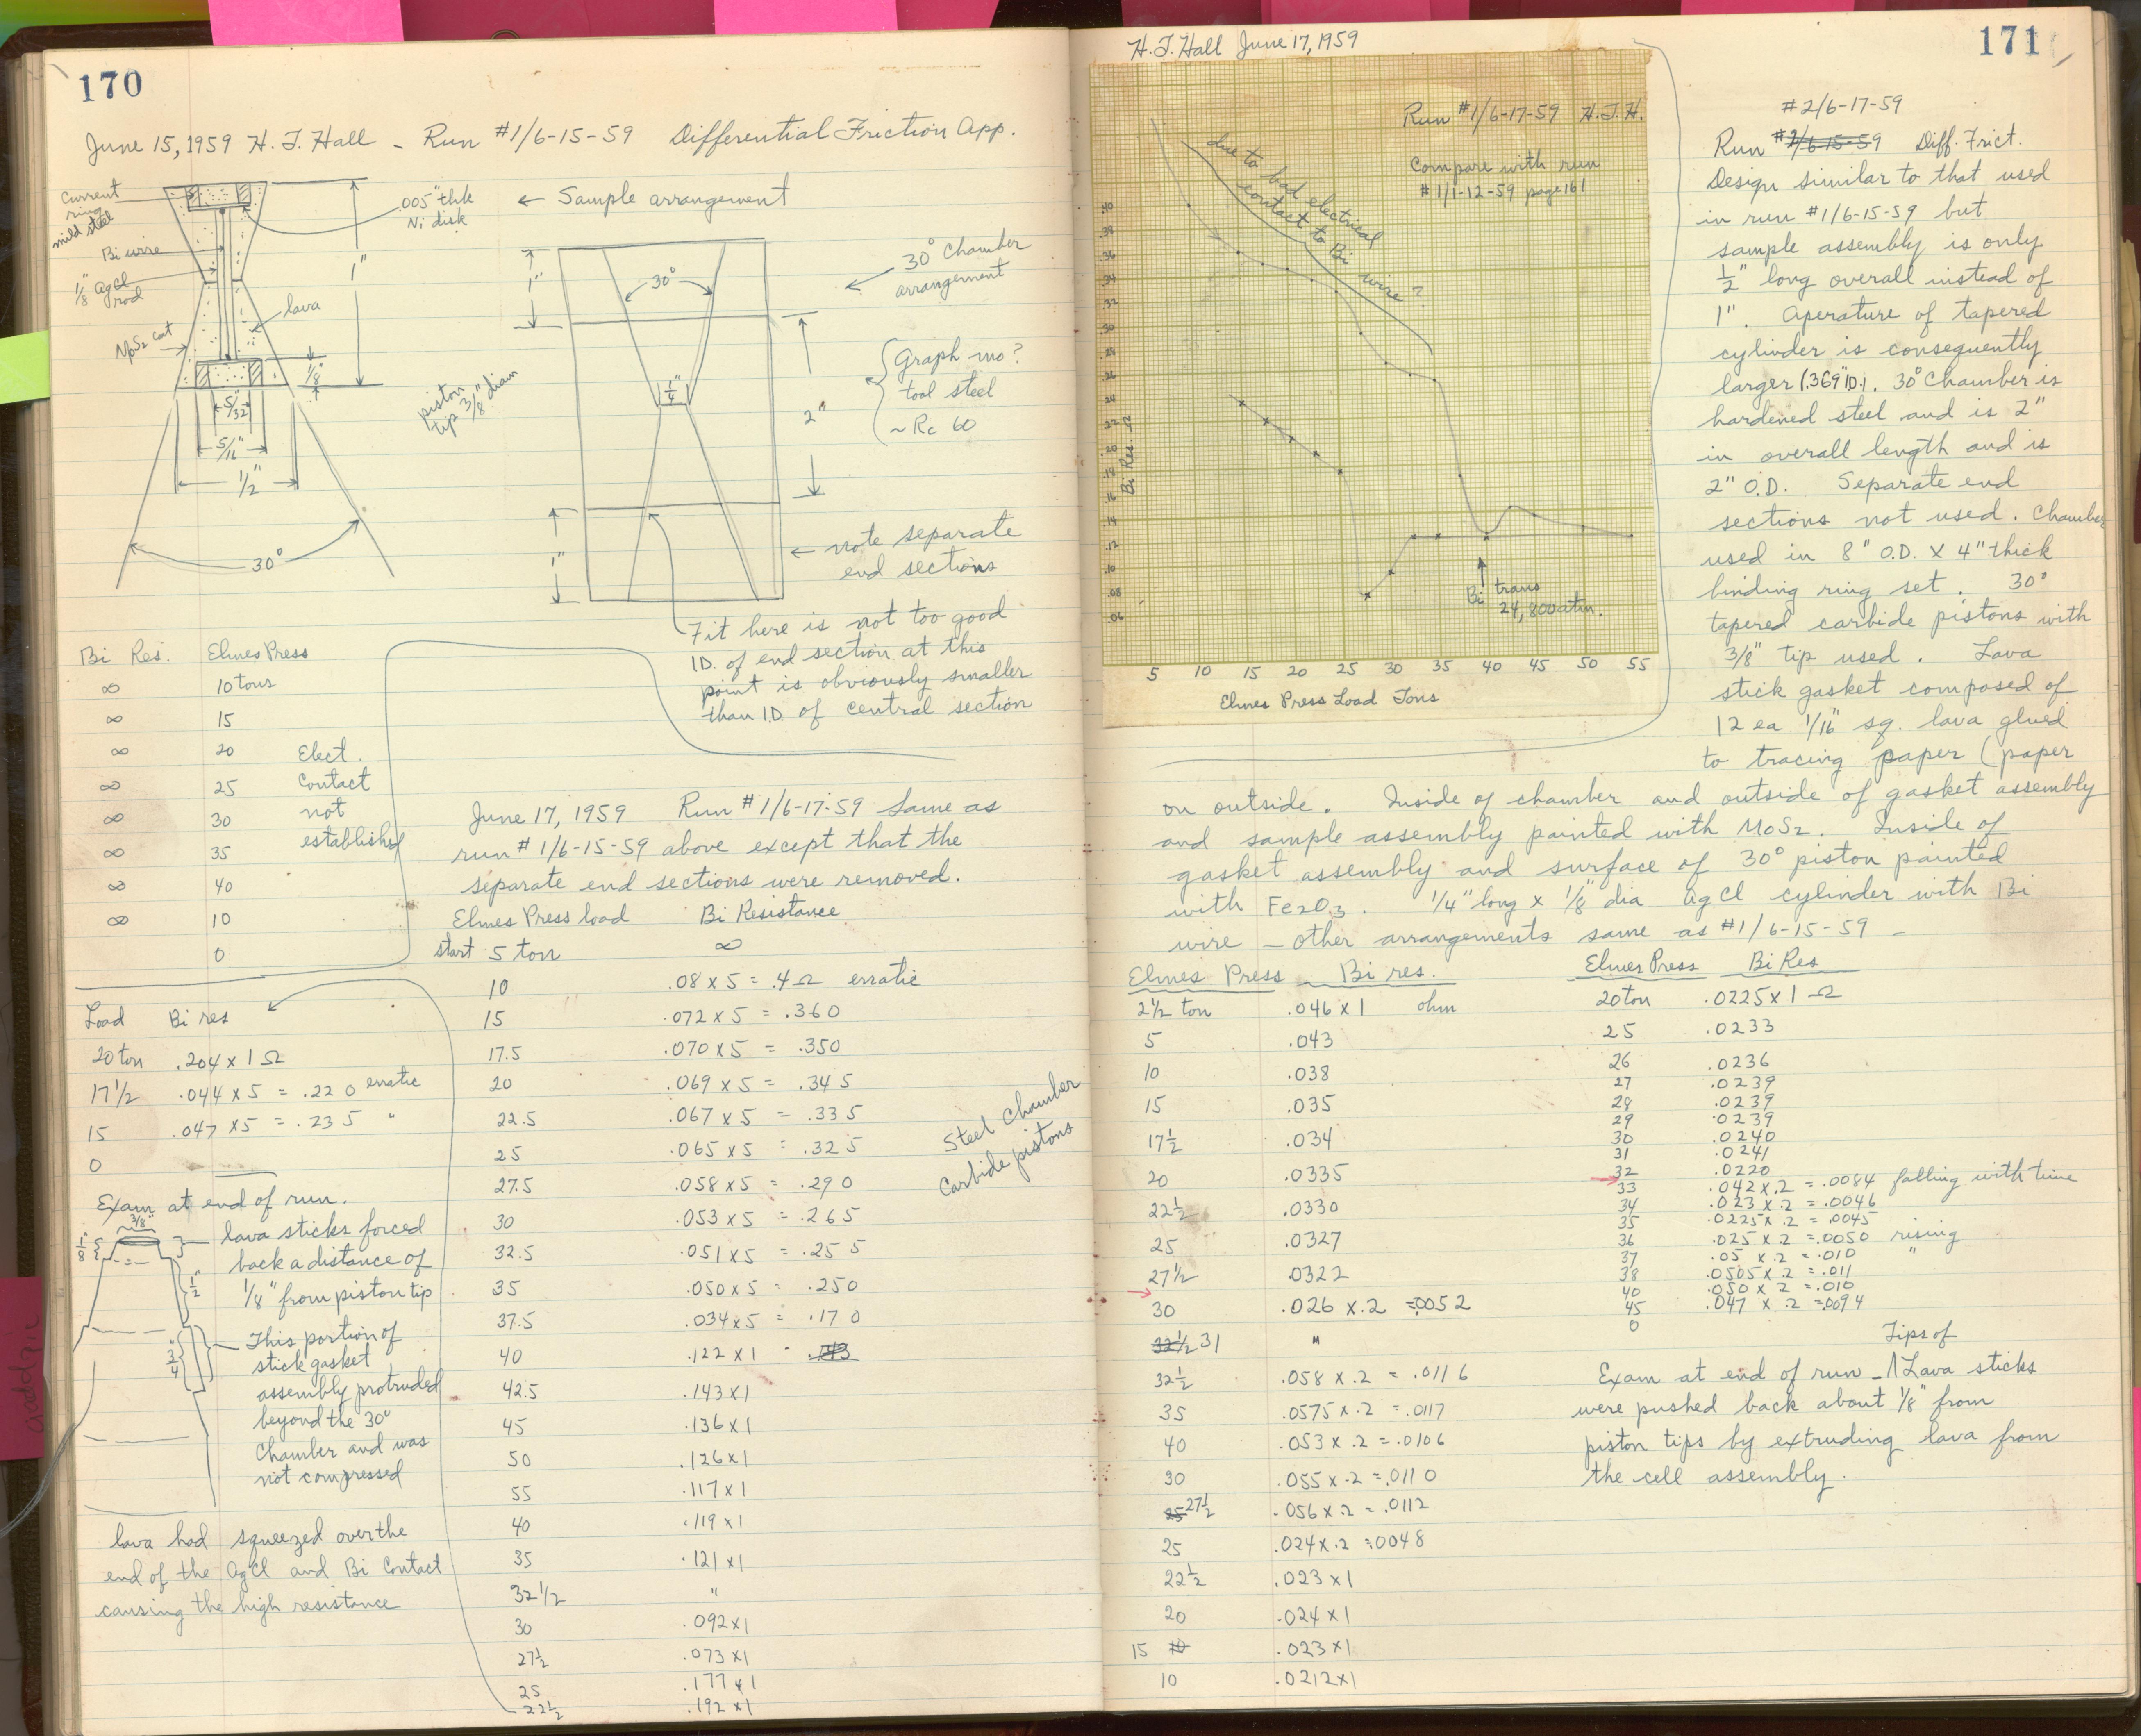 170
June 15, 1959 H. T. Hall - Run #1/6-15-59 Differential Friction App.
Current
ring
mild steel
Bi wire
1/8" AgCl
rod
MoS2 coat
.005" thk
Ni disk
← Sample arrangement
1"
lava
1/8"
5/32"
5/16"
1/2"
30°
piston
tip 3/8" diam
1"
30°
1/4"
2"
1"
30° Chamber
arrangement
Graph mo?
tool steel
~ Rc 60
← note separate
end sections
Fit here is not too good
ID. of end section at this
point is obviously smaller
than I.D. of central section
Bi Res. Elmes Press
∞ 10 tons
∞ 15
∞ 20 Elect.
∞ 25 Contact
∞ 30 not
∞ 35 established
∞ 40
∞ 10
0
June 17, 1959 Run #1/6-17-59 Same as
run #1/6-15-59 above except that the
separate end sections were removed.
Elmes Press load Bi Resistance
start 5 ton ∞
10 .08 x 5 = .4 Ω erratic
15 .072 x 5 = .360
17.5 .070 x 5 = .350
20 .069 x 5 = .345
22.5 .067 x 5 = .335
25 .065 x 5 = .325
27.5 .058 x 5 = .290
30 .053 x 5 = .265
32.5 .051 x 5 = .255
35 .050 x 5 = .250
37.5 .034 x 5 = .170
40 .122 x 1
42.5 .143 x 1
45 .136 x 1
50 .126 x 1
55 .117 x 1
40 .119 x 1
35 .121 x 1
32 1/2 "
30 .092 x 1
27 1/2 .073 x 1
25 .177 x 1
22 1/2 .192 x 1
Steel Chamber
Carbide pistons
Load Bi res
20 ton .204 x 1 Ω
17 1/2 .044 x 5 = .220 erratic
15 .047 x 5 = .235 "
0
Exam at end of run.
3/8"
1/8"
1/2"
3/4"
lava sticks forced
back a distance of
1/8" from piston tip
This portion of
stick gasket
assembly protruded
beyond the 30°
Chamber and was
not compressed
lava had squeezed over the
end of the AgCl and Bi Contact
causing the high resistance
H. T. Hall June 17, 1959
171
Run #1/6-17-59 H.T.H.
Compare with run
#1/1-12-59 page 161
due to bad electrical
contact to Bi wire?
.40
.38
.36
.34
.32
.30
.28
.26
.24
.22
.20
.18
.16
.14
.12
.10
.08
.06
Bi Res. Ω
Bi trans
24,800 atm.
5 10 15 20 25 30 35 40 45 50 55
Elmes Press Load Tons
#2/6-17-59
Run #2/6-15-59 Diff. Frict.
Design similar to that used
in run #1/6-15-59 but
sample assembly is only
1/2" long overall instead of
1". Aperature of tapered
cylinder is consequently
larger (.369" ID.). 30° Chamber is
hardened steel and is 2"
in overall length and is
2" O.D. Separate end
sections not used. Chamber
used in 8" O.D. X 4" thick
binding ring set. 30°
tapered carbide pistons with
3/8" tip used. Lava
stick gasket composed of
12 ea 1/16" sq. lava glued
to tracing paper (paper
on outside. Inside of chamber and outside of gasket assembly
and sample assembly painted with MoS2. Inside of
gasket assembly and surface of 30° piston painted
with Fe2O3. 1/4" long x 1/8" dia AgCl cylinder with Bi
wire - other arrangements same as #1/6-15-59 -
Elmes Press Bi res.
2 1/2 ton .046 x 1 ohm
5 .043
10 .038
15 .035
17 1/2 .034
20 .0335
22 1/2 .0330
25 .0327
27 1/2 .0322
30 .026 x .2 = .0052
32 1/2 31 "
32 1/2 .058 x .2 = .0116
35 .0575 x .2 = .0117
40 .053 x .2 = .0106
30 .055 x .2 = .0110
25 27 1/2 .056 x .2 = .0112
25 .024 x .2 = .0048
22 1/2 .023 x 1
20 .024 x 1
15 10 .023 x 1
10 .0212 x 1
Elmes Press Bi Res
20 ton .0225 x 1 Ω
25 .0233
26 .0236
27 .0239
28 .0239
29 .0239
30 .0240
31 .0241
32 .0220
33 .042 x .2 = .0084 falling with time
34 .023 x .2 = .0046
35 .0225 x .2 = .0045
36 .025 x .2 = .0050 rising
37 .05 x .2 = .010 "
38 .0505 x .2 = .011
40 .050 x .2 = .010
45 .047 x .2 = .0094
0
Tips of
Exam at end of run - ∧ Lava sticks
were pushed back about 1/8" from
piston tips by extruding lava from
the cell assembly.